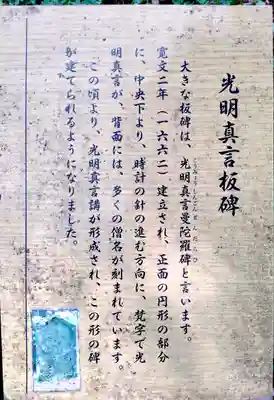 光明真言板碑
大きな板碑は、光明真言曼陀羅碑と言います。
寛文二年（一六六二）建立され、正面の円形の部分
に、中央下より、時計の針の進む方向に、梵字で光
明真言が、背面には、多くの僧名が刻まれています。
この頃より、光明真言講が形成され、この形の碑
が建てられるようになりました。